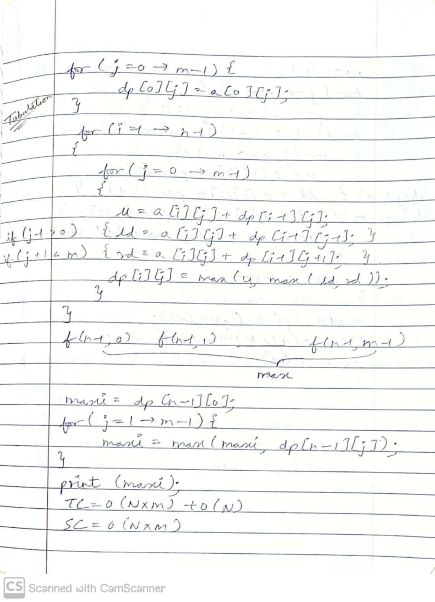 for (j=0 → m-1) {
dp[0][j] = a[0][j];
Tabulation
}
for (i=1 → n-1)
{
for (j=0 → m-1)
{
u = a[i][j] + dp[i-1][j];
if (j-1>0) { ld = a[i][j] + dp[i-1][j-1]; }
if (j+1<m) { rd = a[i][j] + dp[i-1][j+1]; }
dp[i][j] = max(u, max(ld, rd));
}
}
f(n-1, 0) f(n-1, 1) ... f(n-1, m-1)
max
maxi = dp[n-1][0];
for (j=1 → m-1) {
maxi = max(maxi, dp[n-1][j]);
}
print (maxi);
TC = O(N×M) + O(N)
SC = O(N×M)
CS Scanned with CamScanner